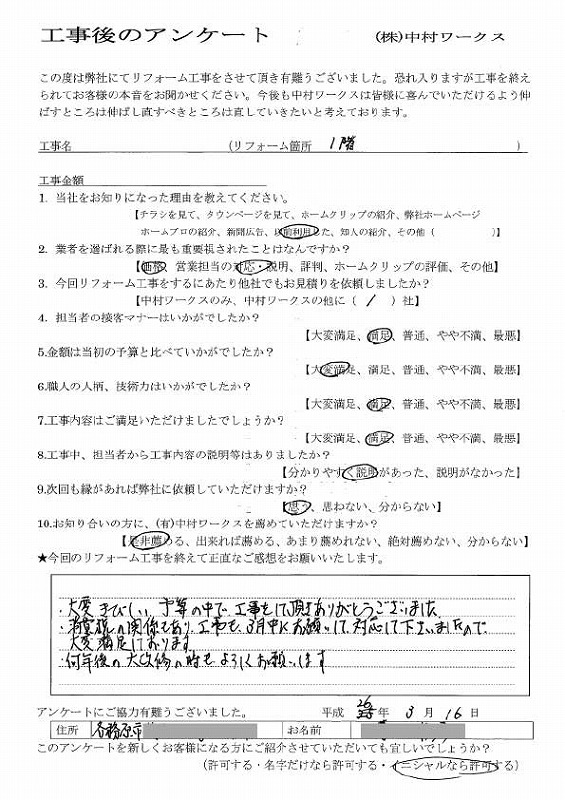 工事後のアンケート (株)中村ワークス
この度は弊社にてリフォーム工事をさせて頂き有難うございました。恐れ入りますが工事を終え
られてお客様の本音をお聞かせください。今後も中村ワークスは皆様に喜んでいただけるよう伸
ばすところは伸ばし直すべきところは直していきたいと考えております。
工事名 (リフォーム箇所 1階 )
工事金額
1. 当社をお知りになった理由を教えてください。
【チラシを見て、タウンページを見て、ホームクリップの紹介、弊社ホームページ
ホームプロの紹介、新聞広告、以前利用した、知人の紹介、その他( )】
2. 業者を選ばれる際に最も重要視されたことはなんですか?
【価格、営業担当の対応・説明、評判、ホームクリップの評価、その他】
3. 今回リフォーム工事をするにあたり他社でもお見積りを依頼しましたか?
【中村ワークスのみ、中村ワークスの他に( / )社】
4. 担当者の接客マナーはいかがでしたか?
【大変満足、満足、普通、やや不満、最悪】
5.金額は当初の予算と比べていかがでしたか?
【大変満足、満足、普通、やや不満、最悪】
6.職人の人柄、技術力はいかがでしたか?
【大変満足、満足、普通、やや不満、最悪】
7.工事内容はご満足いただけましたでしょうか?
【大変満足、満足、普通、やや不満、最悪】
8.工事中、担当者から工事内容の説明等はありましたか?
【分かりやすく説明があった、説明がなかった】
9.次回も縁があれば弊社に依頼していただけますか?
【思う、思わない、分からない】
10.お知り合いの方に、(有)中村ワークスを薦めていただけますか?
【是非薦める、出来れば薦める、あまり薦めれない、絶対薦めない、分からない】
★今回のリフォーム工事を終えて正直なご感想をお願いいたします。
・大変きびしい予算の中で、工事をして頂きありがとうございました。
・消費税の関係もあり、工事も、3月中にお願いして対応して下さいましたので、
大変満足しております
・何年後の大改修の時もよろしくお願いします
アンケートにご協力有難うございました。 平成 26 年 3 月 16 日
住所 各務原市 お名前
このアンケートを新しくお客様になる方にご紹介させていただいても宜しいでしょうか?
(許可する・名字だけなら許可する・イニシャルなら許可する)